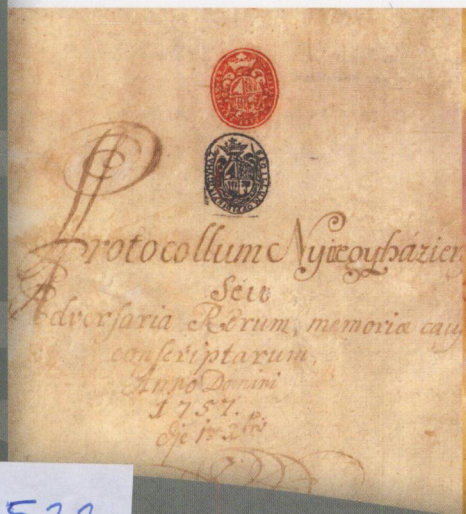 Protocollum Nyiregyházien
Seu
Adversaria Rerum, memoriæ cauſ
conscriptarum,
Anno Domini
1757.
Die